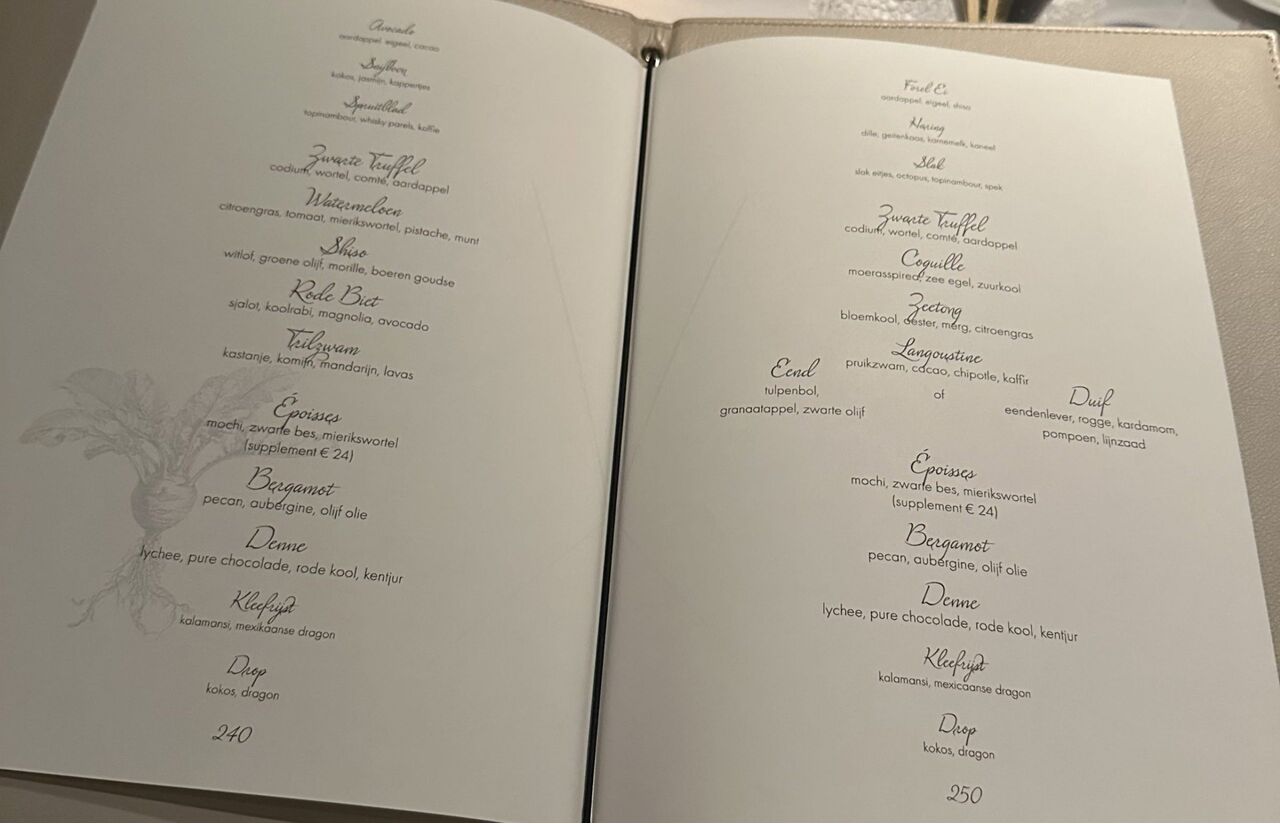 Avocado
aardappel, eigeel, cacao
Soyboon
kokos, jasmijn, kappertjes
Spruitblad
topinambour, whisky parels, koffie
Zwarte Truffel
codium, wortel, comté, aardappel
Watermeloen
citroengras, tomaat, mierikswortel, pistache, munt
Shiso
witlof, groene olijf, morille, boeren goudse
Rode Biet
sjalot, koolrabi, magnolia, avocado
Trilzwam
kastanje, komijn, mandarijn, lavas
Époisses
mochi, zwarte bes, mierikswortel
(supplement € 24)
Bergamot
pecan, aubergine, olijf olie
Denne
lychee, pure chocolade, rode kool, kentjur
Kleefrijst
kalamansi, mexikaanse dragon
Drop
kokos, dragon
240
Forel Ei
aardappel, eigeel, shiso
Haring
dille, geitenkaas, karnemelk, kaneel
Slak
slak eitjes, octopus, topinambour, spek
Zwarte Truffel
codium, wortel, comté, aardappel
Coquille
moerasspirea, zee egel, zuurkool
Zeetong
bloemkool, oester, merg, citroengras
Langoustine
pruikzwam, cacao, chipotle, kaffir
Eend
tulpenbol,
granaatappel, zwarte olijf
of
Duif
eendenlever, rogge, kardamom,
pompoen, lijnzaad
Époisses
mochi, zwarte bes, mierikswortel
(supplement € 24)
Bergamot
pecan, aubergine, olijf olie
Denne
lychee, pure chocolade, rode kool, kentjur
Kleefrijst
kalamansi, mexicaanse dragon
Drop
kokos, dragon
250